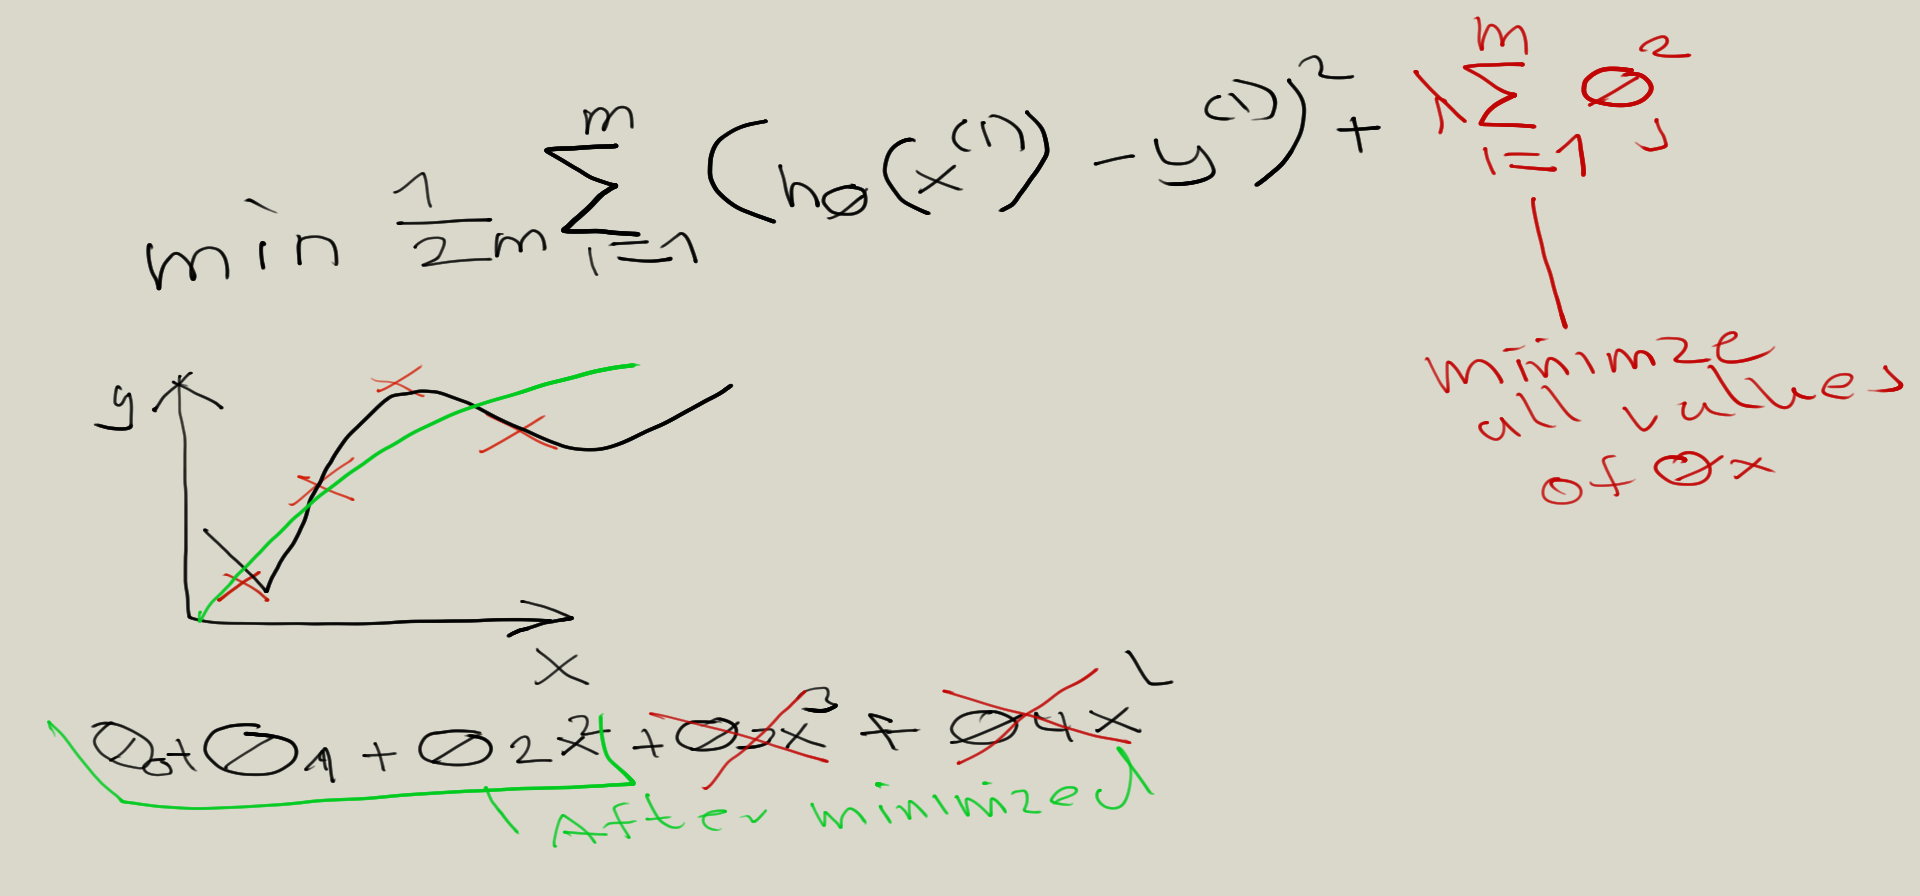 min 1/2m m∑i=1 (hθ(x^(1)) - y^(1))^2 + λ m∑i=1 θj^2
minimze
all values
of θx
y
x
θ0 + θ1 + θ2x^2 + θ3x^3 + θ4x^L
After minimized